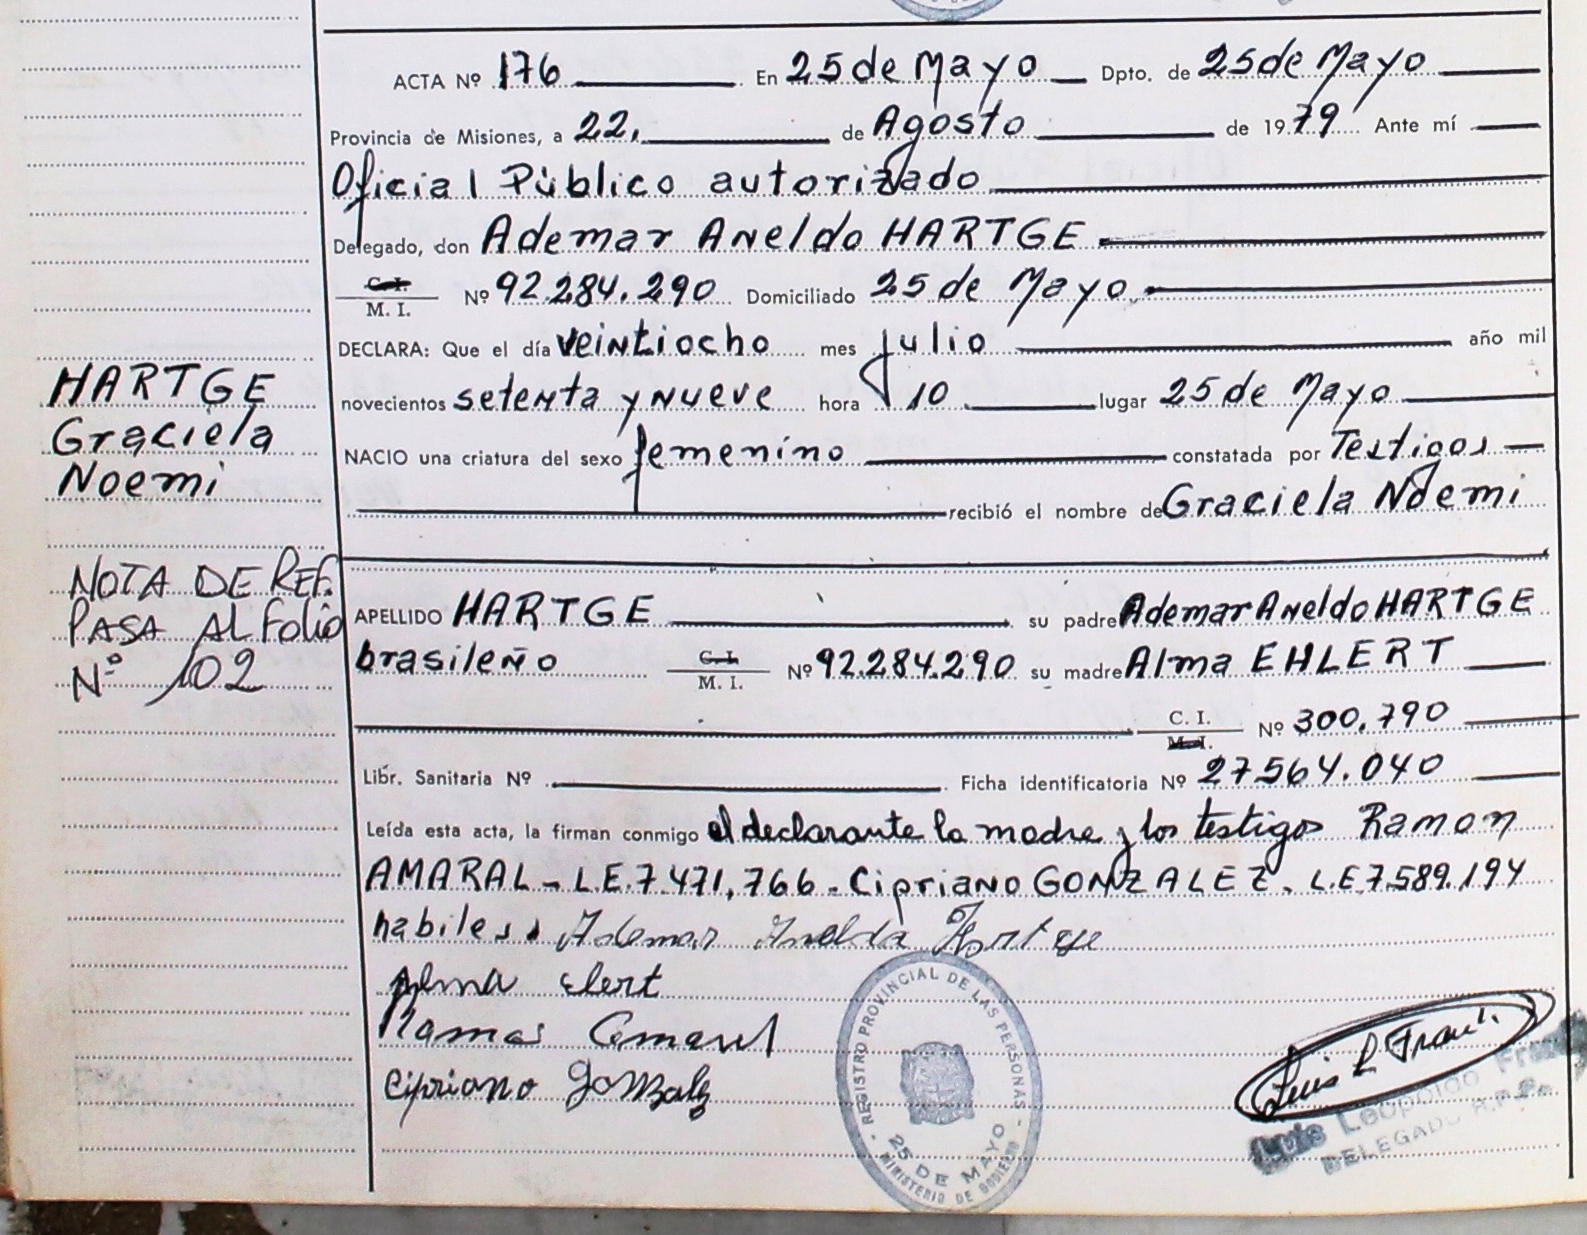 ACTA Nº 176 En 25 de Mayo Dpto. de 25 de Mayo
Provincia de Misiones, a 22, de Agosto de 1979 Ante mí
Oficial Público autorizado
Delegado, don Ademar Aneldo HARTGE
C. I.
M. I. Nº 92.284.290 Domiciliado 25 de Mayo
DECLARA: Que el día veintiocho mes julio año mil
novecientos setenta y nueve hora 10 lugar 25 de Mayo
NACIO una criatura del sexo femenino constatada por Testigos
recibió el nombre de Graciela Noemi
HARTGE
Graciela
Noemi
NOTA DE REF.
PASA AL Folio
Nº 102
APELLIDO HARTGE su padre Ademar Aneldo HARTGE
brasileño C. I.
M. I. Nº 92.284.290 su madre Alma EHLERT
C. I.
M. I. Nº 300.790
Libr. Sanitaria Nº Ficha identificatoria Nº 27564.040
Leída esta acta, la firman conmigo el declarante la madre y los testigos Ramon
AMARAL - L.E.7.471.766 - Cipriano GONZALEZ. L.E.7.589.194
habiles. Ademar Anelda Hartge
Alma elert
Cipriano Gonzalez
REGISTRO PROVINCIAL DE LAS PERSONAS
25 DE MAYO
MINISTERIO DE GOBIERNO
Luis L
Luis Leopoldo
DELEGADO R.P.P.